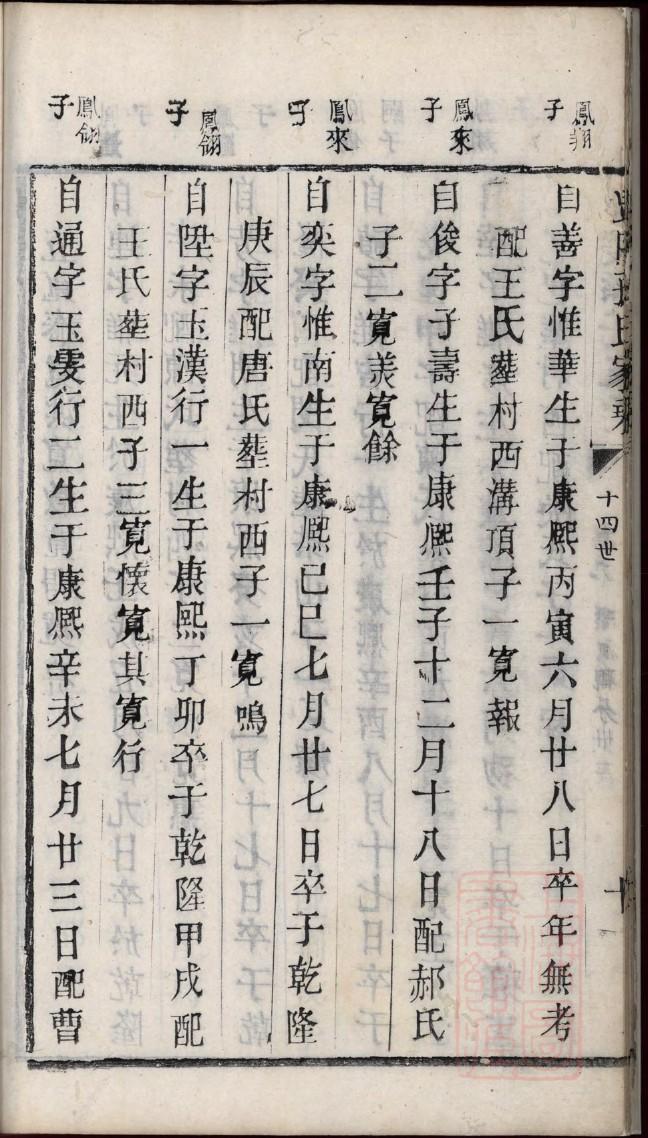 十四世
十
鳳翔
子
自善字惟華生于康熙丙寅六月廿八日卒年無考
配王氏塟村西溝頂子一寬報
鳳來
子
自俊字子壽生于康熙壬子十二月十八日配郝氏
子二寬羙寬餘
鳳來
子
自奕字惟南生于康熙己巳七月廿七日卒于乾隆
庚辰配唐氏塟村西子一寬鳴
鳳翎
子
自陞字玉漢行一生于康熙丁卯卒于乾隆甲戌配
王氏塟村西子三寬懷寬其寬行
鳳翎
子
自通字玉雯行二生于康熙辛未七月廿三日配曹